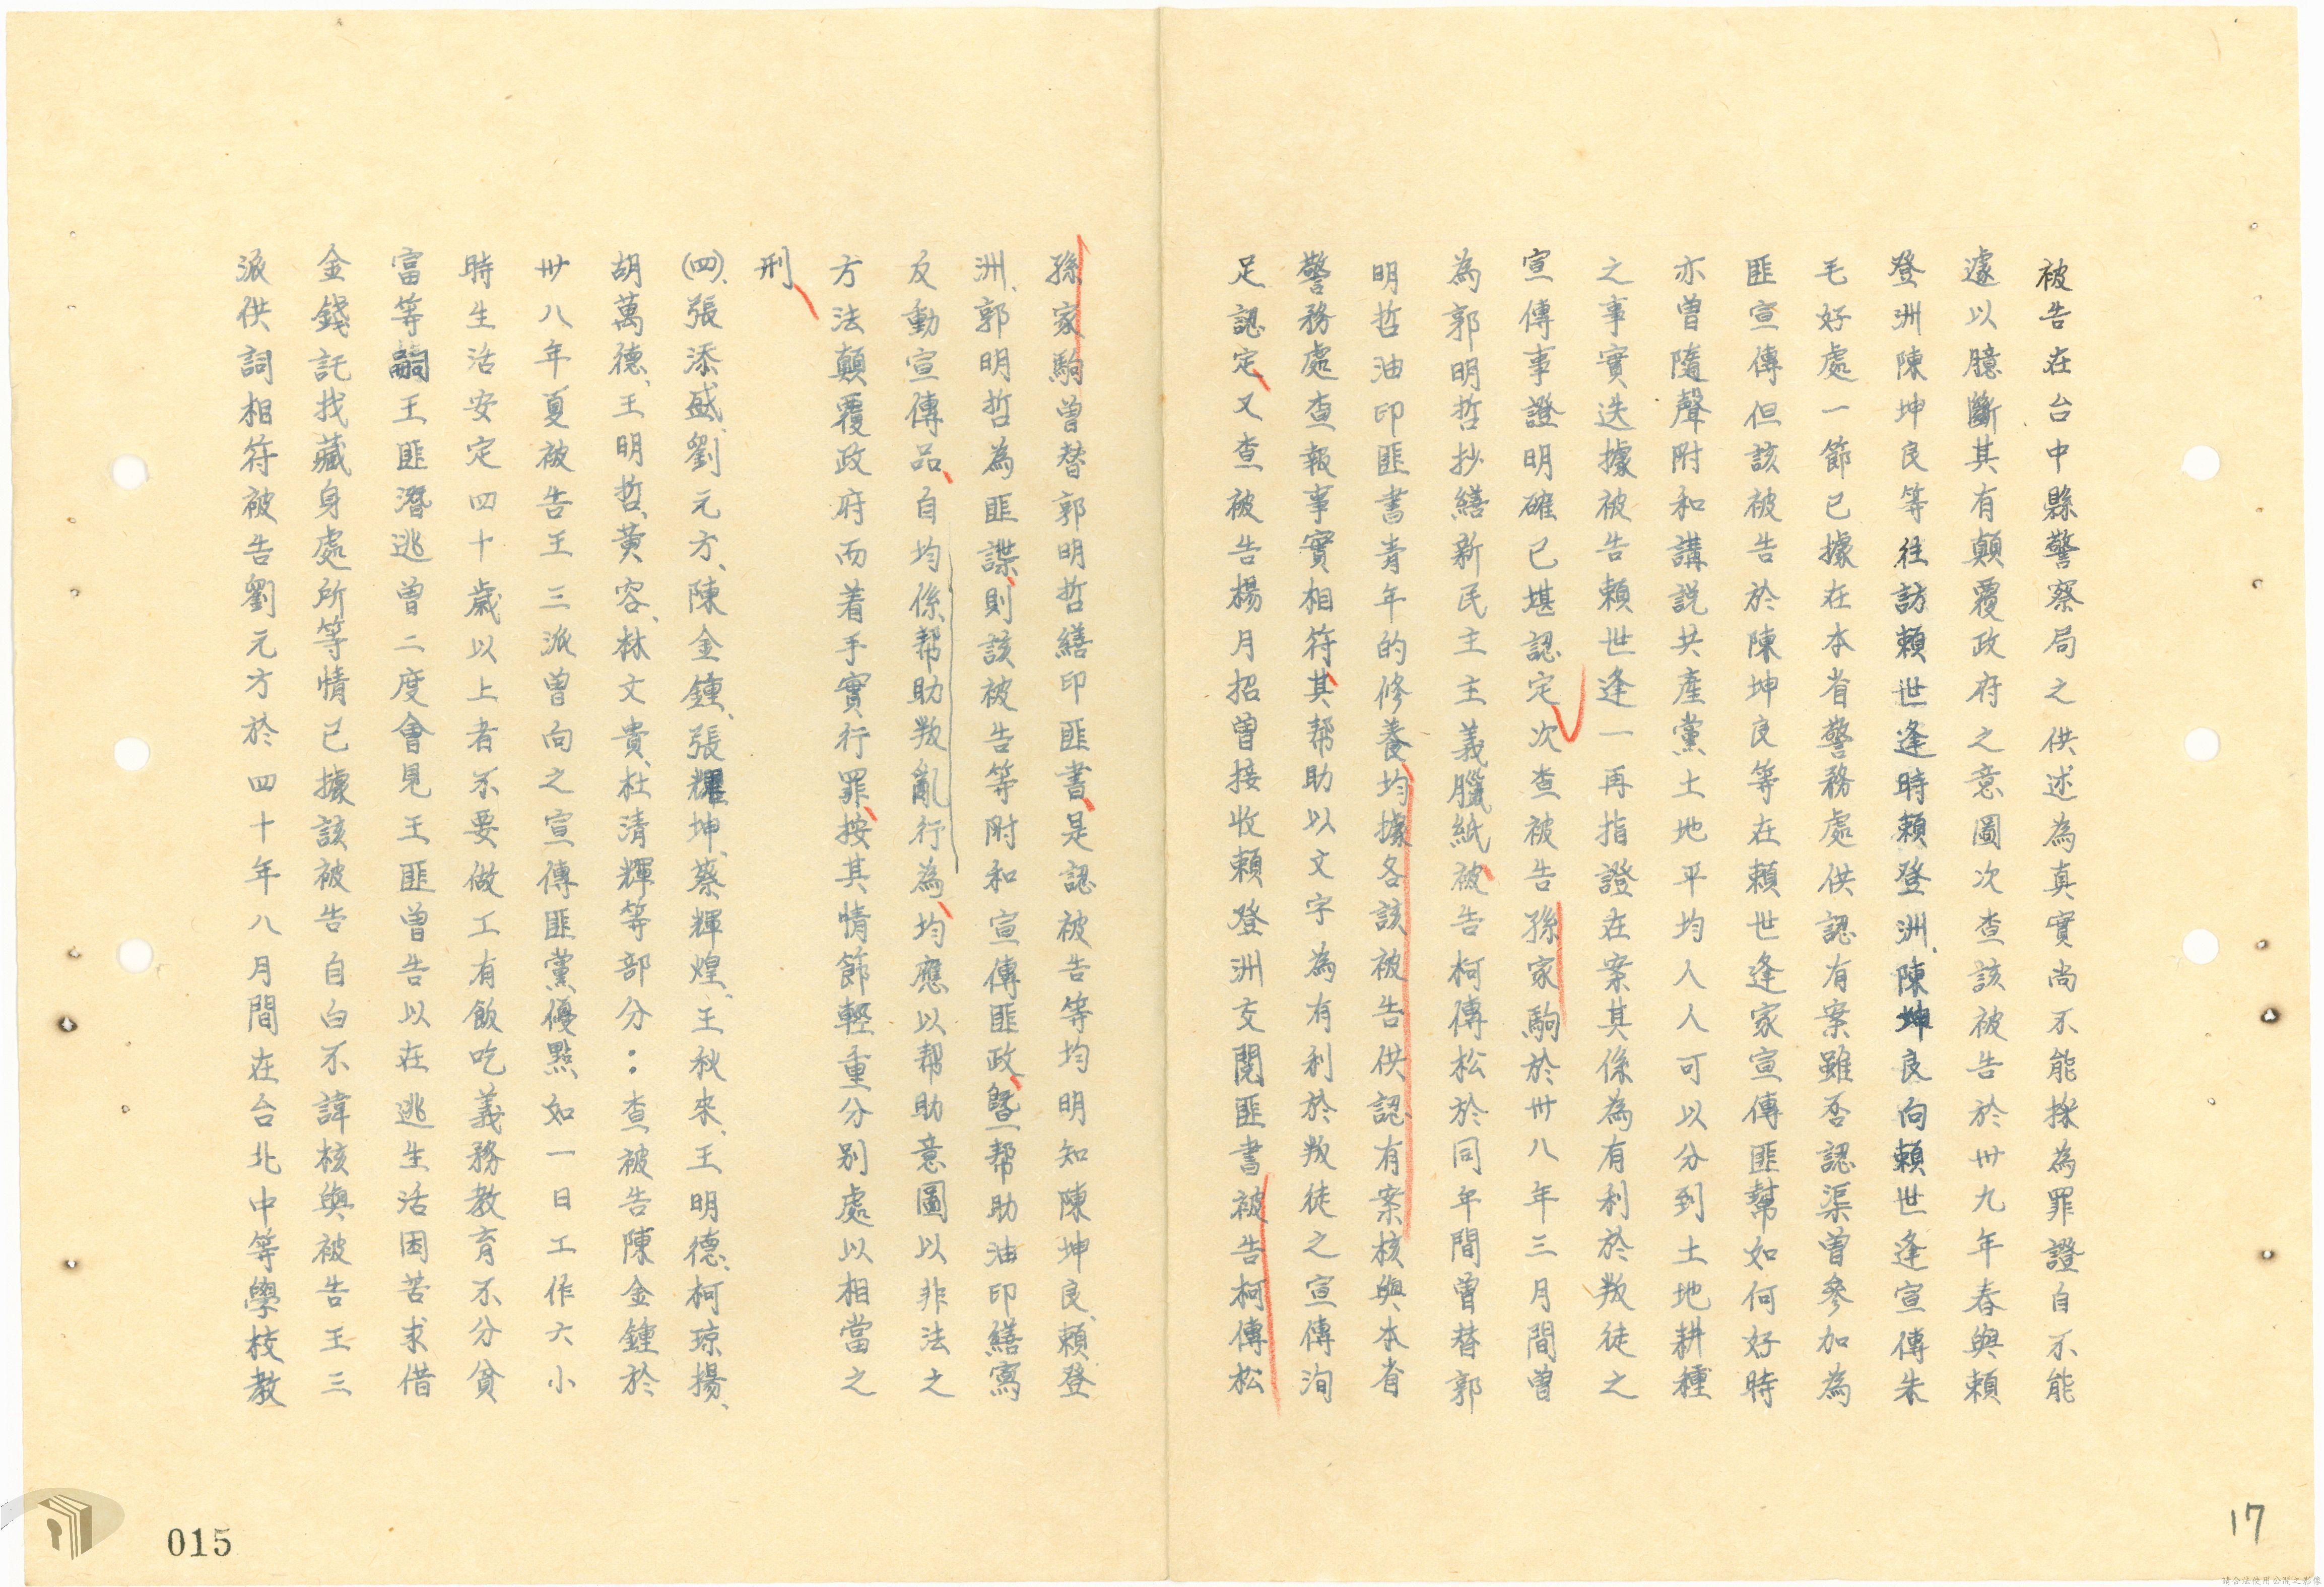 被告在台中縣警察局之供述為真實尚不能採為罪證自不能
遽以臆斷其有顛覆政府之意圖次查該被告於卅九年春與賴
登洲陳坤良等往訪賴世逢時賴登洲、陳坤良向賴世逢宣傳朱
毛好處一節已據在本省警務處供認有案雖否認渠曾參加為
匪宣傳但該被告於陳坤良等在賴世逢家宣傳匪幫如何好時
亦曾隨聲附和講説共產黨土地平均人人可以分到土地耕種
之事實迭據被告賴世逢一再指證在案其係為有利於叛徒之
宣傳事證明確已堪認定次查被告孫家駒於卅八年三月間曾
為郭明哲抄繕新民主主義臘紙被告柯傳松於同年間曾替郭
明哲油印匪書青年的修養均據各該被告供認有案核與本省
警務處查報事實相符其帮助以文字為有利於叛徒之宣傳洵
足認定又查被告楊月招曾接收賴登洲交閱匪書被告柯傳松
孫家駒曾替郭明哲繕印匪書是認被告等均明知陳坤良、賴登
洲、郭明哲為匪諜則該被告等附和宣傳匪政暨帮助油印繕寫
反動宣傳品自均係帮助叛亂行為均應以帮助意圖以非法之
方法顛覆政府而着手實行罪按其情節輕重分別處以相當之
刑
㈣、張添盛、劉元方、陳金鍾、張耀坤、蔡輝煌、王秋來、王明德、柯琼揚、
胡萬德、王明哲、黃容、林文貴、杜清輝等部分：查被告陳金鍾於
卅八年夏被告王三派曾向之宣傳匪黨優點如一日工作六小
時生活安定四十歲以上者不要做工有飯吃義務教育不分貧
富等嗣王匪潛逃曾二度會見王匪曾告以在逃生活困苦求借
金錢託找藏身處所等情已據該被告自白不諱核與被告王三
派供詞相符被告劉元方於四十年八月間在台北中等學校教
015
17
請合法使用公開之影像